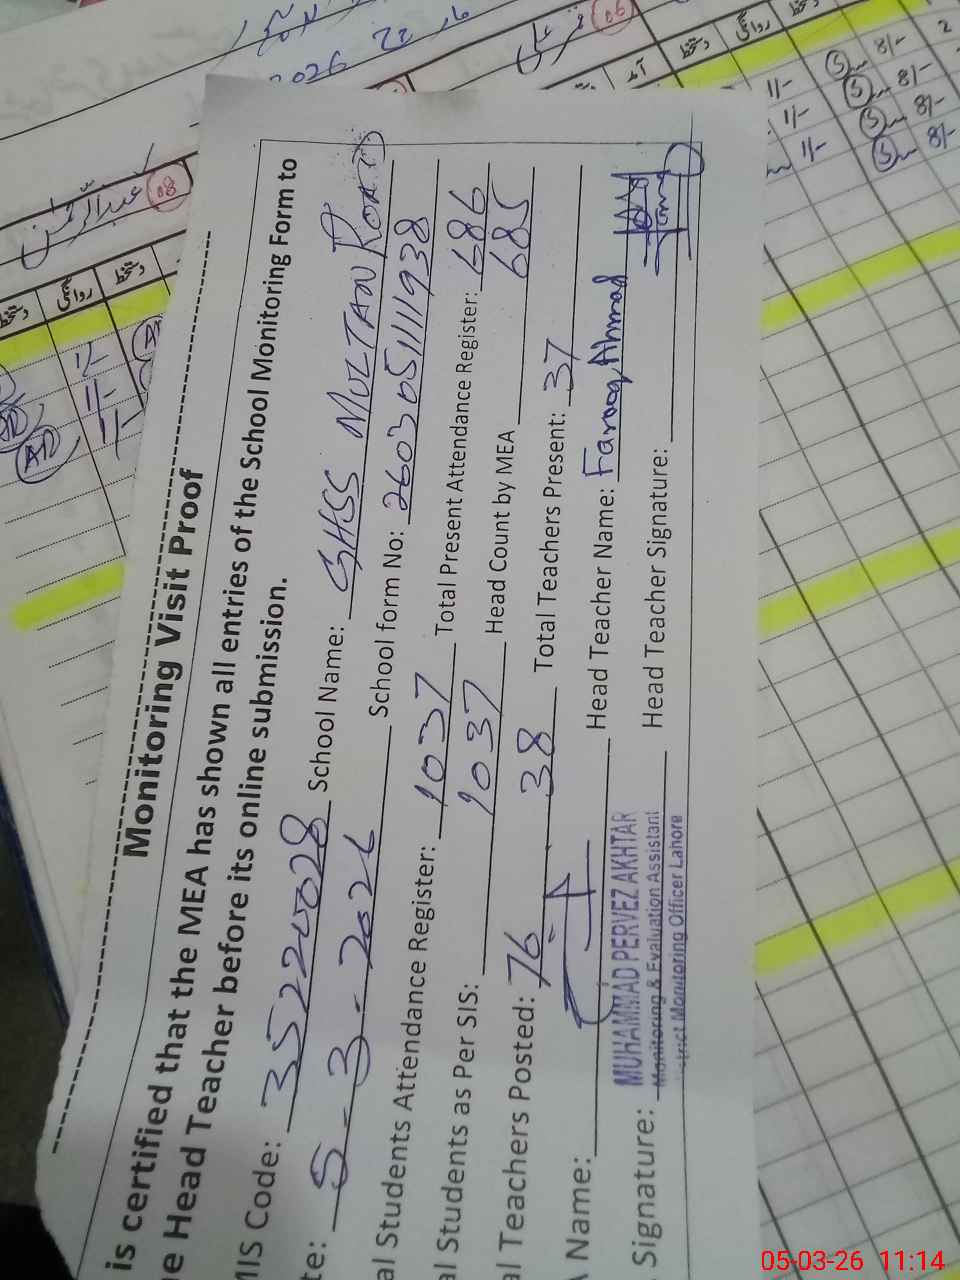 Monitoring Visit Proof
is certified that the MEA has shown all entries of the School Monitoring Form to
e Head Teacher before its online submission.
MIS Code: 35220028 School Name: GHSS MULTAN ROAD
te: 5-3-2026 School form No: 2603051111938
al Students Attendance Register: 1037 Total Present Attendance Register: 686
al Students as Per SIS: 1037 Head Count by MEA 685
al Teachers Posted: 76 38 Total Teachers Present: 37
A Name: Head Teacher Name: Farooq Ahmad
Signature: Head Teacher Signature:
MUHAMMAD PERVEZ AKHTAR
Monitoring & Evaluation Assistant
istrict Monitoring Officer Lahore
08
06
روانگی
دستخط
آمد
دستخط
روانگی
1/-
1/-
1/-
1/-
1/-
1/-
8/-
8/-
8/-
8/-
05-03-26 11:14